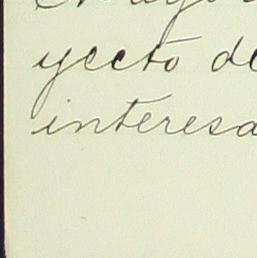 yecto de
interesa